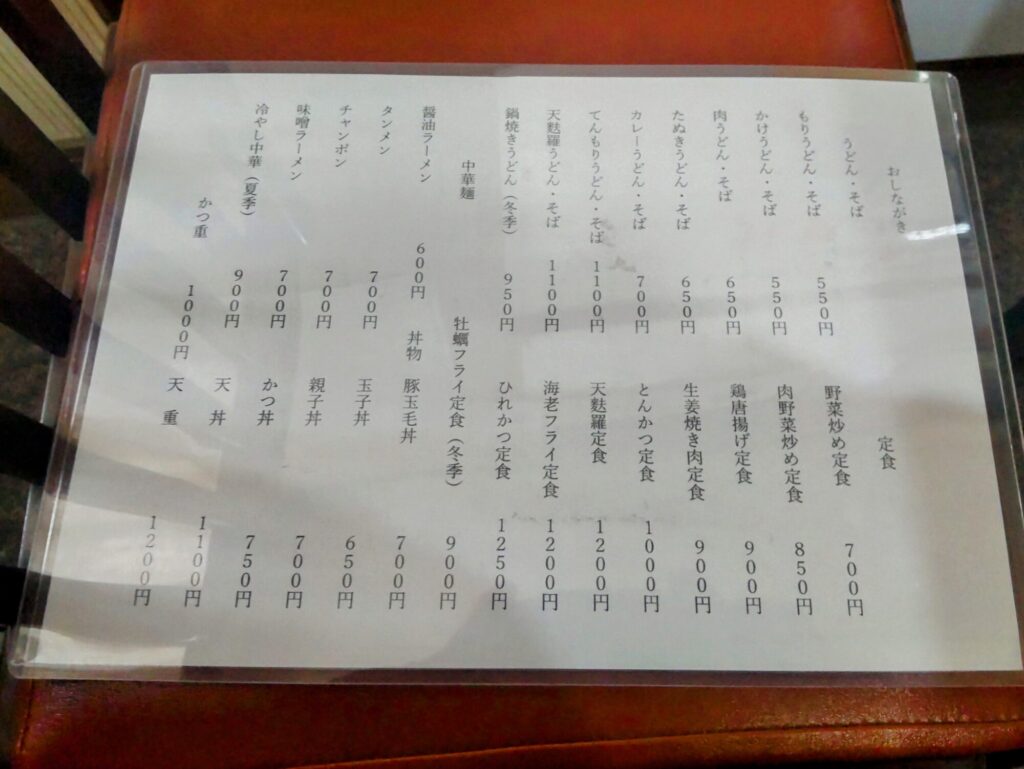 おしながき
うどん・そば
もりうどん・そば 550円
かけうどん・そば 550円
肉うどん・そば 650円
たぬきうどん・そば 650円
カレーうどん・そば 700円
てんもりうどん・そば 1100円
天麩羅うどん・そば 1100円
鍋焼きうどん(冬季) 950円
中華麺
醤油ラーメン 600円
タンメン 700円
チャンポン 700円
味噌ラーメン 700円
冷やし中華(夏季) 900円
かつ重 1000円
定食
野菜炒め定食 700円
肉野菜炒め定食 850円
鶏唐揚げ定食 900円
生姜焼き肉定食 900円
とんかつ定食 1000円
天麩羅定食 1200円
海老フライ定食 1200円
ひれかつ定食 1250円
牡蠣フライ定食(冬季) 900円
丼物
豚玉毛丼 700円
玉子丼 650円
親子丼 700円
かつ丼 750円
天丼 1100円
天重 1200円